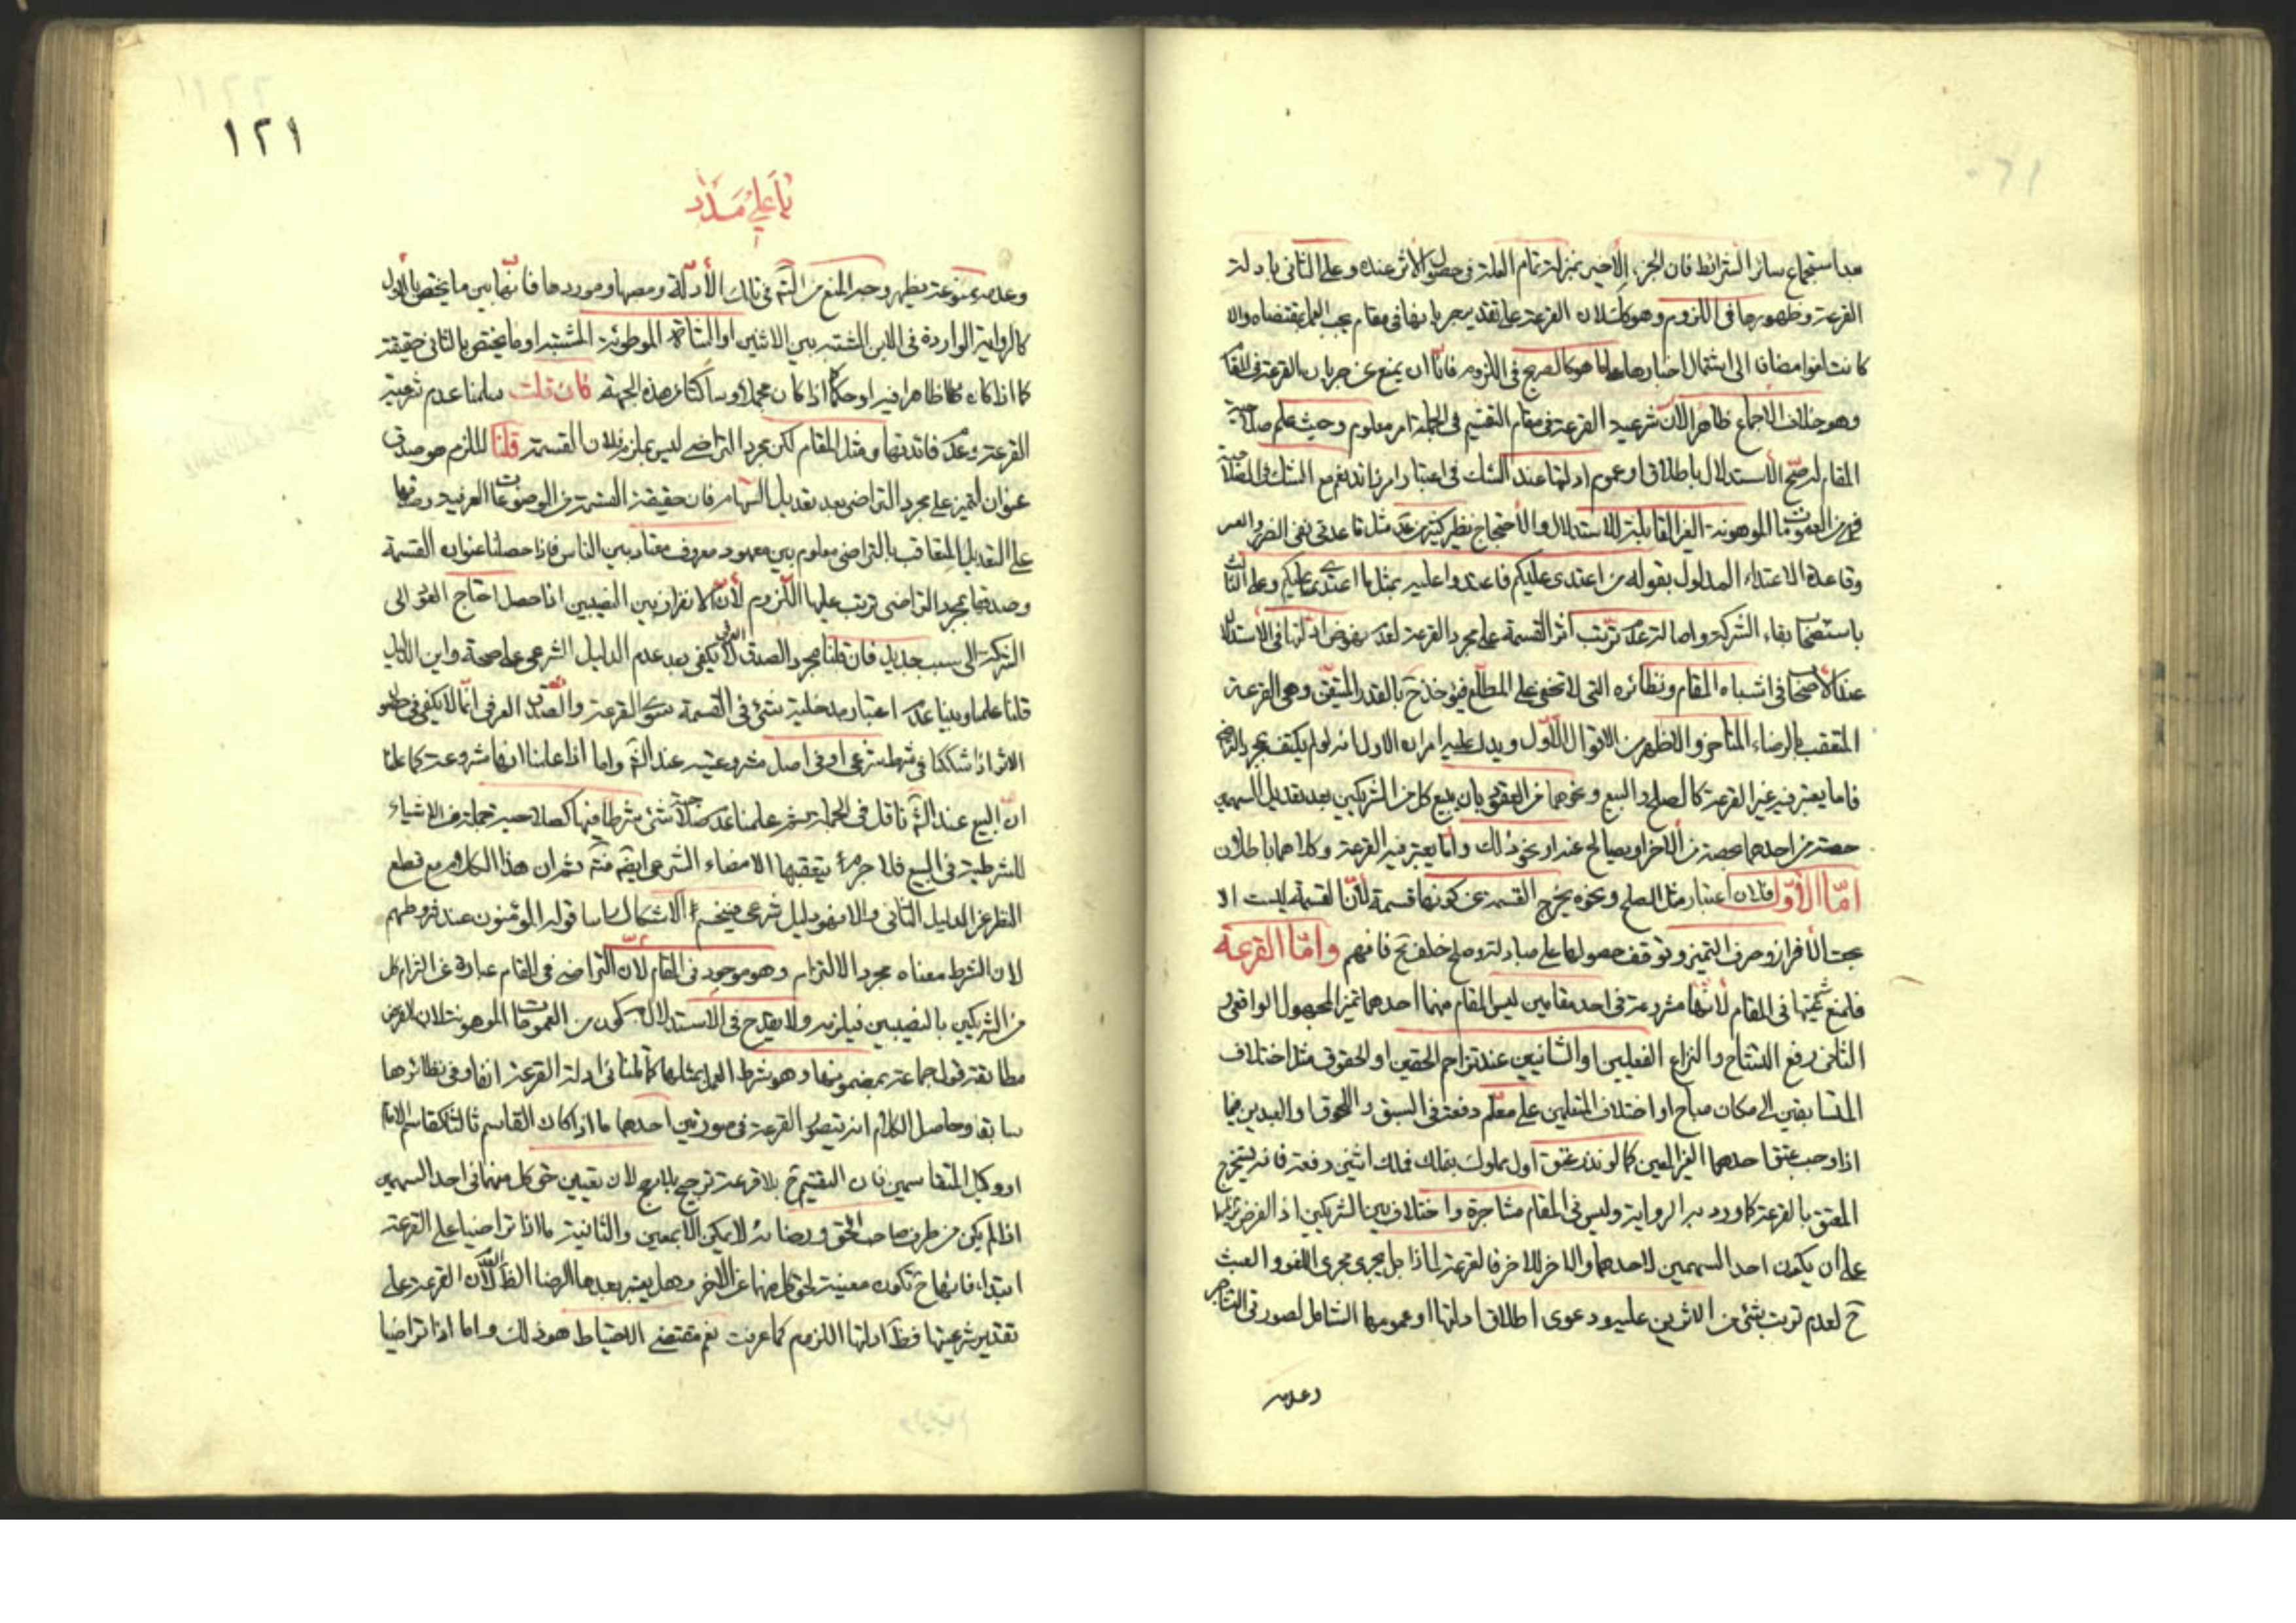 بعد استجماع سائر الشرائط فان الجزء الأخير بمنزلة تمام العلة فى حصول الأثر عنده وعلى الثانى بادلة
القرعة وظهورها فى اللزوم وهو كك لان القرعة على تقدير جريانها فى مقام يجب العمل بمقتضاه والا
كانت لغوا مضافا الى اشتمال اخبارها على ما هو كالصريح فى اللزوم فاما ان يمنع عن جريان القرعة فى المقام
وهو خلاف الاجماع ظاهرا لان شرعية القرعة فى مقام التقسيم فى الجملة امر معلوم وحيث علم صلاحية
المقام لم يصح الأستدلال باطلاق او عموم ادلتها عند الشك فى اعتبار امر زائد نعم مع الشك فى الصلاحية
فهى من العمومات الموهونة الغير القابلة للاستدلال والأحتجاج نظير كثير من مثل قاعدتى نفى الضرر والعسر
وقاعدة الاعتداء المدلول بقوله من اعتدى عليكم فاعتدوا عليه بمثل ما اعتدى عليكم وعلى الثالث
باستصحاب بقاء الشركة واصالة عدم ترتب أثر القسمة على مجرد القرعة لعدم نهوض ادلتها فى الأستدلال
عند الأصحاب فى اشباه المقام ونظائره التى لا تخفى على المطلع فيؤخذ ح بالقدر المتيقن وهى القرعة
المتعقب بالرضاء المتأخر والاظهر من الاقوال الأول ويدل عليه امران الاول انه لو لم يكتف بمجرد التراضى
فاما يعتبر فيه غير القرعة كالصلح والبيع ونحوهما من العقود بان يبيع كل من الشريكين بعد تعديل السهمين
حصته من احدهما بحصته من ألاخر او يصالح عنه او نحو ذلك واما يعتبر فيه القرعة وكلاهما باطلان
امّا الأوّل فلان اعتبار مثل الصلح ونحوه يخرج القسمة عن كونها قسمة لأنّ القسمة ليست الا
بحت الأفراز وصرف التميز وتوقف حصولها على مبادلة وصلح خلف ح فافهم وامّا القرعة
فلمنع شرعيتها فى المقام لأنها مشروعة فى احد مقامين ليس المقام منهما احدهما تميز المجهول الواقعى و
الثانى رفع التشاح والنزاع الفعليين او الشانيين عند تزاحم الحقين او الحقوق مثل اختلاف
المتسابقين الى مكان مباح او اختلاف المتعلمين على معلم دفعة فى السبق واللحوق او العبدين فيما
اذا وجب عتق احدهما الغير المعين كما لو نذر عتق اول مملوك يملك فملك اثنين دفعة فانه يستخرج
المعتق بالقرعة كما ورد به الرواية وليس فى المقام مشاجرة واختلاف بين الشريكين اذ الفرض تراضيهما
على ان يكون احد السهمين لاحدهما والاخر للاخر فالقرعة لماذا بل يجرى مجرى اللغو والعبث
ح لعدم ترتب شئ من الاثرين عليه ودعوى اطلاق ادلتها او عمومها الشامل لصورتى التشاجر
وعدمه
١٢١
يا على مدد
وعدمه ممنوعة يظهر وجه المنع من التأمل فى تلك الأدلة ومصبها وموردها فانها بين ما يختص بالأول
كالرواية الواردة فى الابن المشتبه بين الاثنين او الشاة الموطوئة المشتبه او ما يختص بالثانى حقيقة
كما اذا كان ظاهرا فيه او حكما اذا كان مجملا او ساكتا عن هذه الجهة فان قلت سلمنا عدم شرعية
القرعة وعدم فائدتها فى مثل المقام لكن مجرد التراضى ليس بملزم لان القسمة قلنا الملزم هو صدق
عنوان التميز على مجرد التراضى بعد تعديل السهام فان حقيقة القسمة من الموضوعات العرفية وصدقها
على التعديل المتعاقب بالتراضى معلوم بين معهود معروف معتاد بين الناس فاذا حصلنا عنوان القسمة
وصدقها بمجرد التراضى ترتب عليها اللزوم لأن الافراز بين النصيبين اذا حصل احتاج العود الى
الشركة الى سبب جديد فان قلنا مجرد الصدق العرفى لا يكفى بعد عدم الدليل الشرعى على صحته واين الدليل
قلنا علمنا وبينا عدم اعتبار مدخلية شئ فى القسمة سوى القرعة والصدق العرفى انما لا يكفى فى
الاثر اذا شككنا فى شرط شرعى او فى اصل مشروعيته عند الشرع واما اذا علمنا انها مشروعة كما علمنا
انّ البيع عند الشرع ناقل فى الجملة ثم علمنا عدم صلاحية شئ شرطا فيها كصلاحية جملة من الاشياء
للشرطية فى البيع فلا جرم يتعقبها الامضاء الشرعى ايضا ثم ان هذا الكلام مع قطع
النظر عن الدليل الثانى والا فهو دليل شرعى فينحسم الاشكال راسا قوله المؤمنون عند شروطهم
لان الشرط معناه مجرد الالتزام وهو موجود فى المقام لأن التراضى فى المقام عبارة عن التزام كل
من الشريكين بالنصيبين فيلزم ولا يقدح فى الاستدلال كون من العمومات الموهونة لان الفرض
مطابقة قول جماعة بمضمونها وهو شرط العمل بمثلها كما قلنا فى ادلة القرعة انفا وفى نظائرها
سابقا وحاصل الكلام انه يتصور القرعة فى صورتين احدهما ما اذا كان القاسم ثالثا كقاسم الامام
او وكيل المتقاسمين فان التقسيم ح بلا قرعة ترجيح بلا مرجح لان تعيين حق كل منهما فى احد السهمين
اذا لم يكن من طرف صاحب الحق ورضائه لا يمكن الا بمعين والثانية ما اذا تراضيا على القرعة
ابتداء فانها ح تكون معينة لحق كل منهما عن الاخر وهل يعتبر بعدها الرضا الظ لأن القرعة على
تقدير شرعيتها فظ ادلتها اللزوم كما عرفت نعم مقتضى الاحتياط هو ذلك واما اذا تراضيا